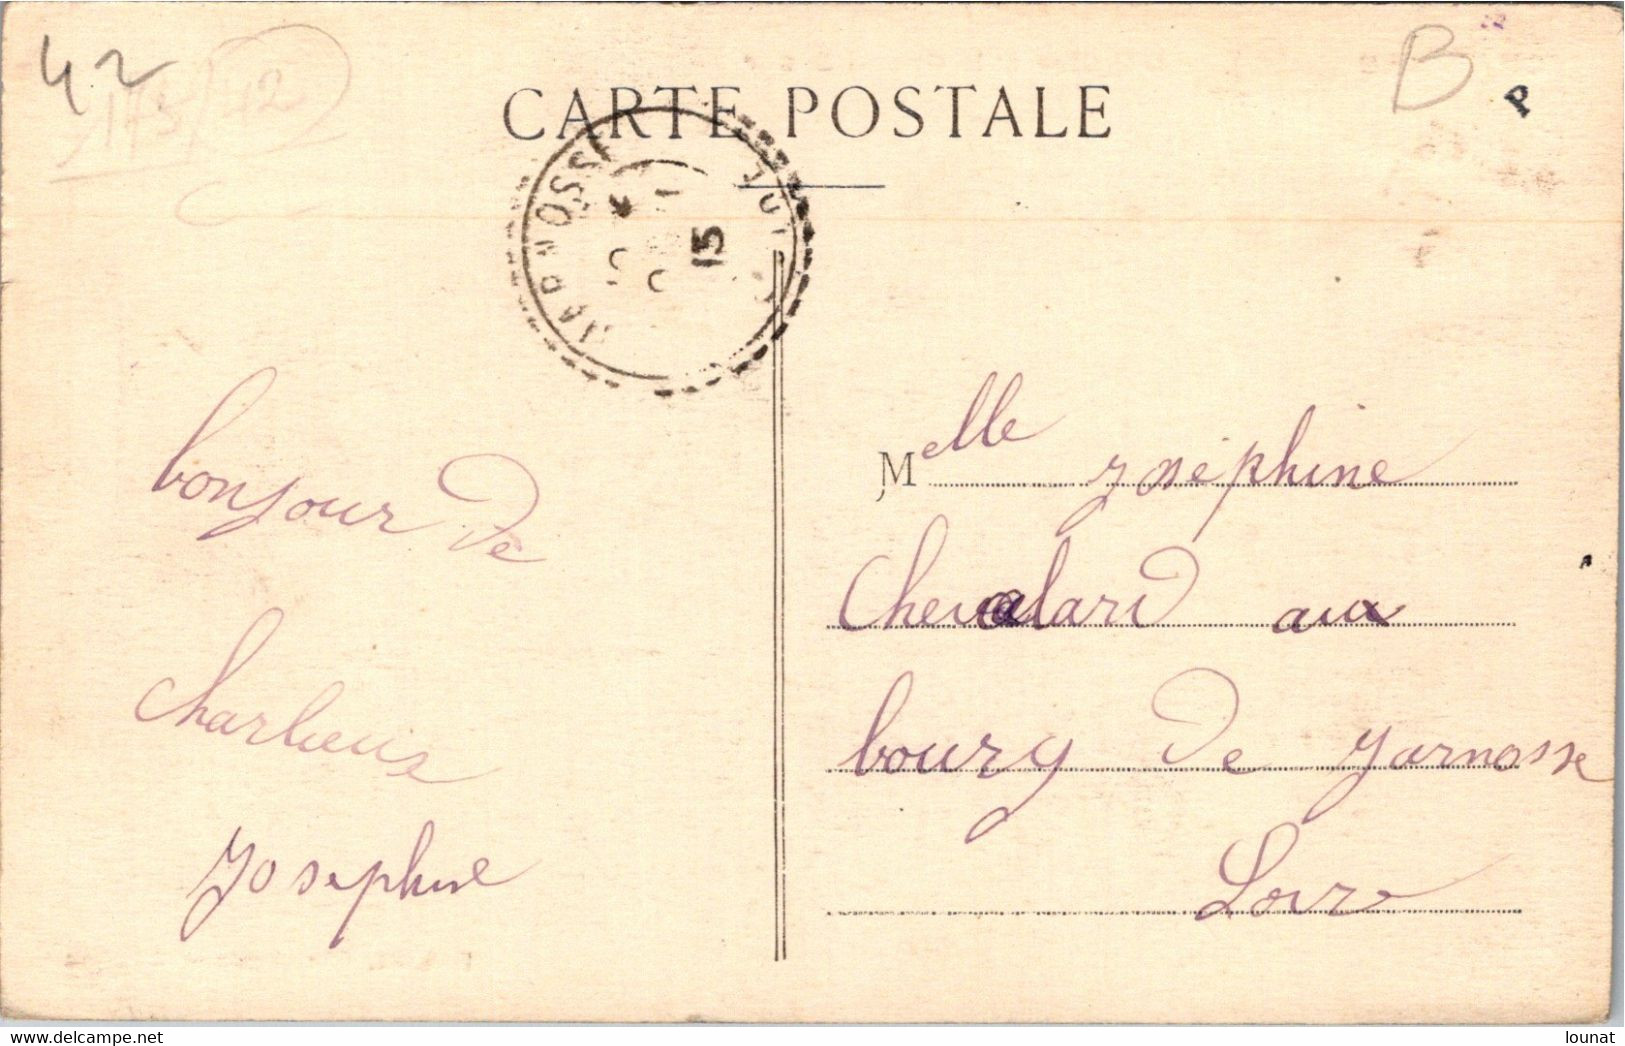 42
175/42
B
P
CARTE POSTALE
JARNOSSE
15
bonjour de
charlieus
Josephine
Melle Joséphine
Chevalard aux
bourg de Jarnosse
Loire
www.delcampe.net
lounat